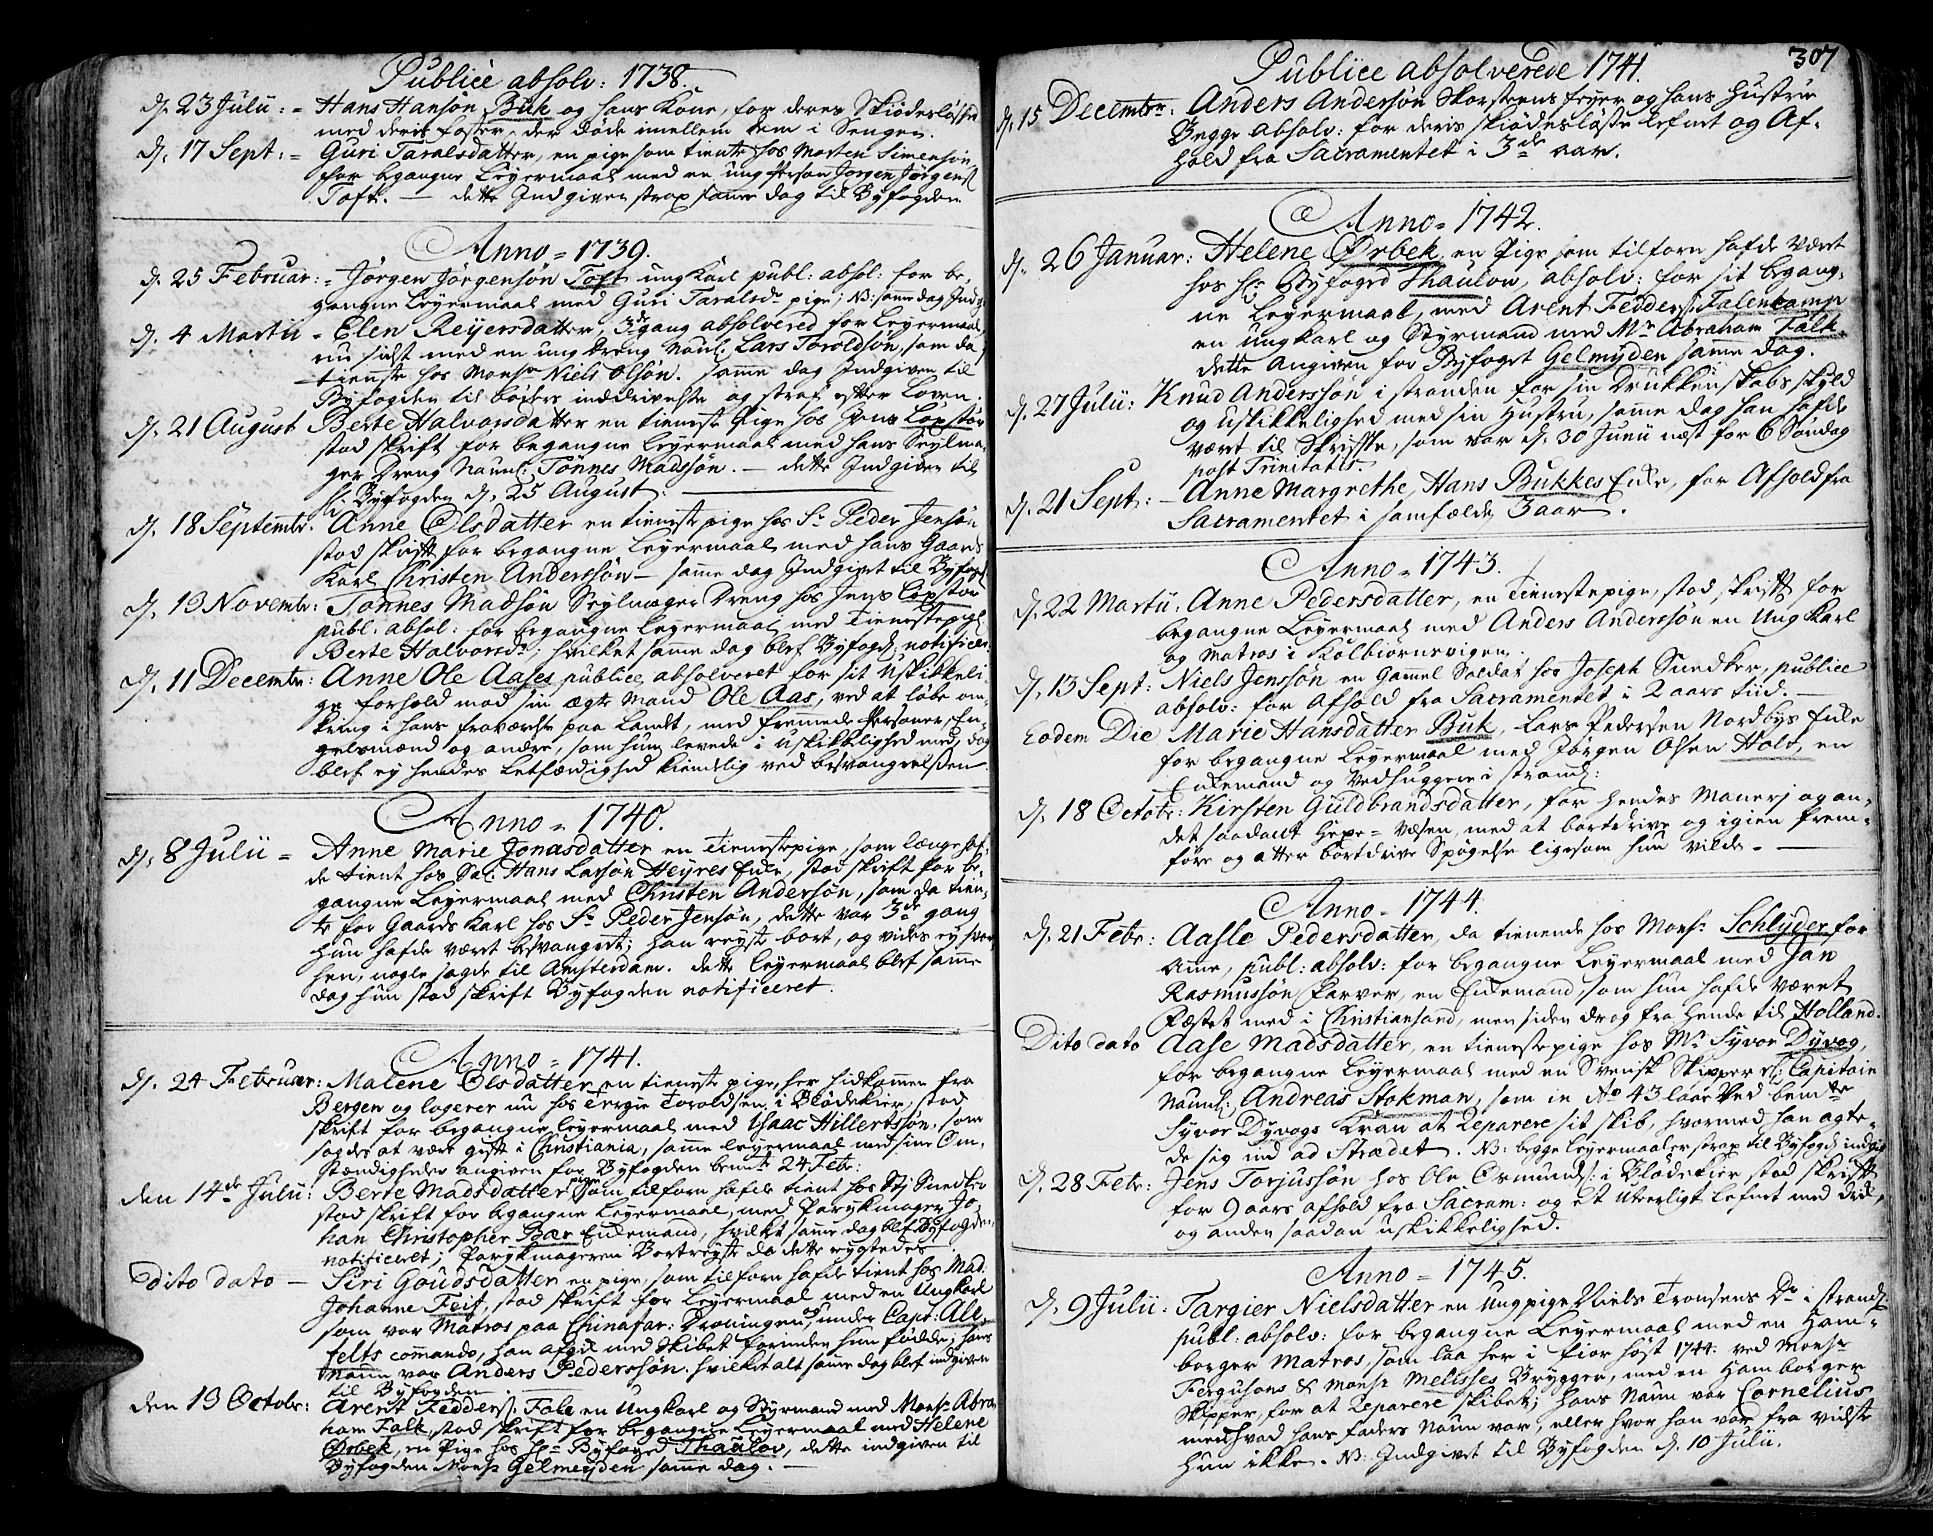 Publicè absolv: 1738.
d. 23 Julii: = Hans Hansøn Buk og hans Kone, for deres Skiødesløshe
med deris foster, der døde imellem dem i Sengen.
d. 17 Sept: = Guri Taralsdatter, en pige som tiente hos Morten Simensøn,
for begangne Leyermaal med en ung Person Jørgen Jørgens:
Toft. — dette Indgiven strax samme dag til Byfogden
Anno = 1739.
d. 25 Februar: = Jørgen Jørgensøn Toft ung Karl publ: absol: for be-
gangne Leyermaal med Guri Taralsd: pige; NB: samme dag Indg:
d. 4 Martii = Elen Reyersdatter, 3de gang absolvered for Leyermaal,
nu sidst med en ung dreng Naunl: Lars Toroldsøn, som da
tienste hos Monsr Niels Olsøn. samme dag Indgiven til
Byfogden til bøders inddrivelse og straf efter Loven.
d. 21 August Berte Halvorsdatter en tieneste Pige hos Jens Lopstør
stod skrift for begangne Leyermaal med hans Seylma-
ger Dreng Naunl: Tønnes Madsøn. — dette Indgiven til
hr: Byfogden d. 25 August.
d. 18 Septembr. Anne Olsdatter en tieneste pige hos Sr Peder Jensøn
stod skrift for begangne Leyermaal med hans Gaards
Karl Christen Andersøn — samme dag Indgivet til Byfogd
d. 13 Novembr: Tønnes Madsøn Seylmager Dreng hos Jens Lopstør
publ. absol: for begangne Leyermaal med Tienestepige
Berte Halvorsdr; hvilket samme dag blef Byfogd: notificeret.
d. 11 Decembr: Anne Ole Aases publicè absolveret for sit Uskikkeli-
ge forhold mod sin ægte Mand Ole Aas, ved at løbe om-
kring i hans fraværelse paa Landet, med fremmede Personer, En-
gelsmænd og andre, som hun levede i Uskikkelighed med, dog
blef ey hendes Letfærdighed kiendelig ved besvangrelsen
Anno = 1740.
d. 8 Julii = Anne Marie Jonasdatter en Tienestepige, som længe haf-
de tient hos Sal: Hans Larsøn Heyres Enke, stod skrift for be-
gangne Leyermaal med Christen Andersøn, som da tien-
te for Gaards Karl hos Sr Peder Jensøn, dette var 3de gang
hun hafde været besvangert; han reyste bort, og vides ey hvor
hen, nogle sagde til Amsterdam. dette Leyermaal blef samme
dag hun stod skrift Byfogden notificeret.
Anno = 1741.
d. 24 Februar: Malene Olsdatter en tieneste pige, her hidkommen fra
Bergen og logerer nu hos Tergie Toroldsen i Blødekier, stod
skrift for begangne Leyermaal med Isaac Hillertssøn, som
sagdes at være gift i Christiania, samme Leyermaal med sine Om-
stændigheder angiven for Byfogden bemte 24 Febr:
den 14de Julii: Berte Madsdatter pige som tilforn hafde tient hos Stj Snedker
stod skrift for begangne Leyermaal, med Parykmager Jo-
han Christopher Bær Enkemand, hvilket samme dag blef Byfogden,
notificeret; Parykmageren Bortreyste da dette rygtedes
Dito dato — Siri Goudsdatter en pige, som tilforn hafde tient hos Mad.
Johanne Feif, stod skrift for Leyermaal med en Ungkarl
som var Matros paa Chinafar: Droningen, under Capt: Ale
felts commando, han afgik med Skibet forinden hun fødde; hans
Naun var Anders Pederssøn, hvilket alt samme dag blef indgiven
til Byfogden
den 13 Octobr: Arent Fedders: Falc en Ungkarl og Styrmand med Monsr Abra
ham Falk, stod skrift for begangne Leyermaal med Helene
Ørbek, en Pige hos Hr: Byfoged Thaulov, dette indgiven til
Byfogden Monsr Gelmeyden samme dag. —
307
Publice absolverede 1741.
d. 15 Decembr: Anders Andersøn Skorsteens feyer og hans Hustrue
Begge absolv: for deris skiødesløse Lefnet og Af-
hold fra Sacramentet i 3de aar.
Anno = 1742.
d. 26 Januar: Helene Ørbek, en Pige som tilforn hafde været
hos Hr: Byfoged Thaulow, absolv: for sit begang-
ne Leyermaal, med Arent Fedders: Falenkamp
en ungkarl og Styrmand med Mr Abraham Falk.
dette Angiven for Byfoget Gelmÿden samme dag.
d. 27 Julii: Knud Anderssøn i stranden for sin Drukkenskabs skyld
og uskikkelighed med sin Hustru, samme dag han hafde
været til Skrifte, som var d. 30 Junii næst for 6 Søndag
post Trinitatis.
d. 21 Sept: — Anne Margrethe, Hans Bukkes Enke, for Afhold fra
Sacramentet i samfælde 3 aar.
Anno = 1743.
d. 22 Martii. Anne Pedersdatter, en Tienestepige, stod skrift for
begangne Leyermaal med Anders Anderssøn en Ung Karl
og Matros i Kolbiørnsvigen.
d. 13 Sept: Niels Jenssøn en Gammel Soldat hos Joseph Snedker, publice
absolv: for Afhold fra Sacramentet i 2 aars tiid. —
Eodem Die Marie Hansdatter Buk, Lars Pedersen Nordbÿs Enke
for begangne Leyermaal med Jørgen Olsen Holt, en
Enkemand og Vedhuggere i strand:
d. 18 Octobr: Kirsten Guldbrandsdatter, for hendes Manerj og an-
det saadant Hexe = Væsen, med at bortdrive og igien frem-
føre og atter bortdrive Spøgelse ligesom hun vilde. —
Anno = 1744.
d. 21 Febr: Aasle Pedersdatter, da tienende hos Monsr. Schlÿder for
Amme, publ: absolv: for begangne Leyermaal med Jan
Rasmussøn Farver, en Enkemand, som hun hafde været
Fæstet med i Christiansand, men siden drog fra Hende til Holland.
Dito dato Aase Madsdatter, en tienestepige hos Mr Syvor Dyvog,
for begangne Leyermaal med en Svensk Skipper el: Capitain
Naunl: Andreas Stokman, som in Ao 43 laae ved bemte
Syvor Dyvogs Kran at Reparere sit skib, hvormed han agte-
de sig ind ad Strædet. NB: begge Leyermaaler strax til Byfogd: indgiv:
d. 28 Febr: Jens Torjussøn hos Ole Ormunds: i Blødekier, stod skrift
for 9 aars afhold fra Sacram: og et Utreligt Lefnet med Drik,
og anden saadan uskikkelighed.
Anno = 1745.
d. 9 Julii: Targier Nielsdatter en Ung pige Niels Tronsens Dr i strand:
publ: absolv: for begangne Leyermaal med en Ham-
borger Matros, som laa her i fior høst 1744. ved Monsr
Fergusons & Monsr Melisses Brygger, med en Hamborger
Skipper, for at Reparere skibet; hans Naun var Cornelius
men hvad hans faders Naun var, eller hvor han var fra vidste
hun ikke. NB: Indgivet til Byfogden d. 10 Julii.